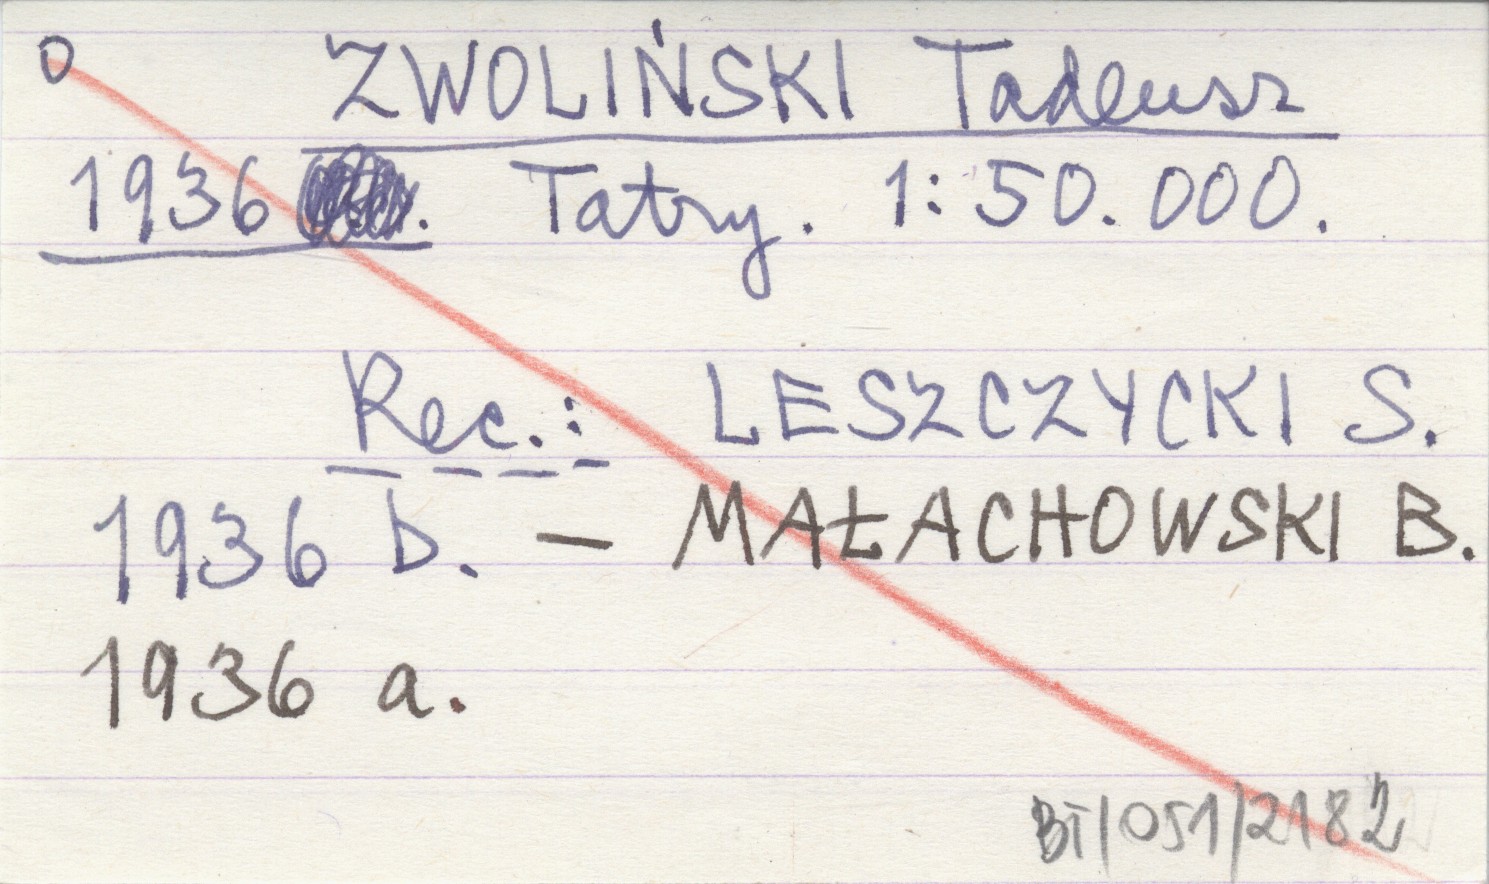 O ZWOLIŃSKI Tadeusz
1936 . Tatry. 1:50.000.
Rec.: LESZCZYCKI S.
1936 b. — MAŁACHOWSKI B.
1936 a.
BT/051/2182